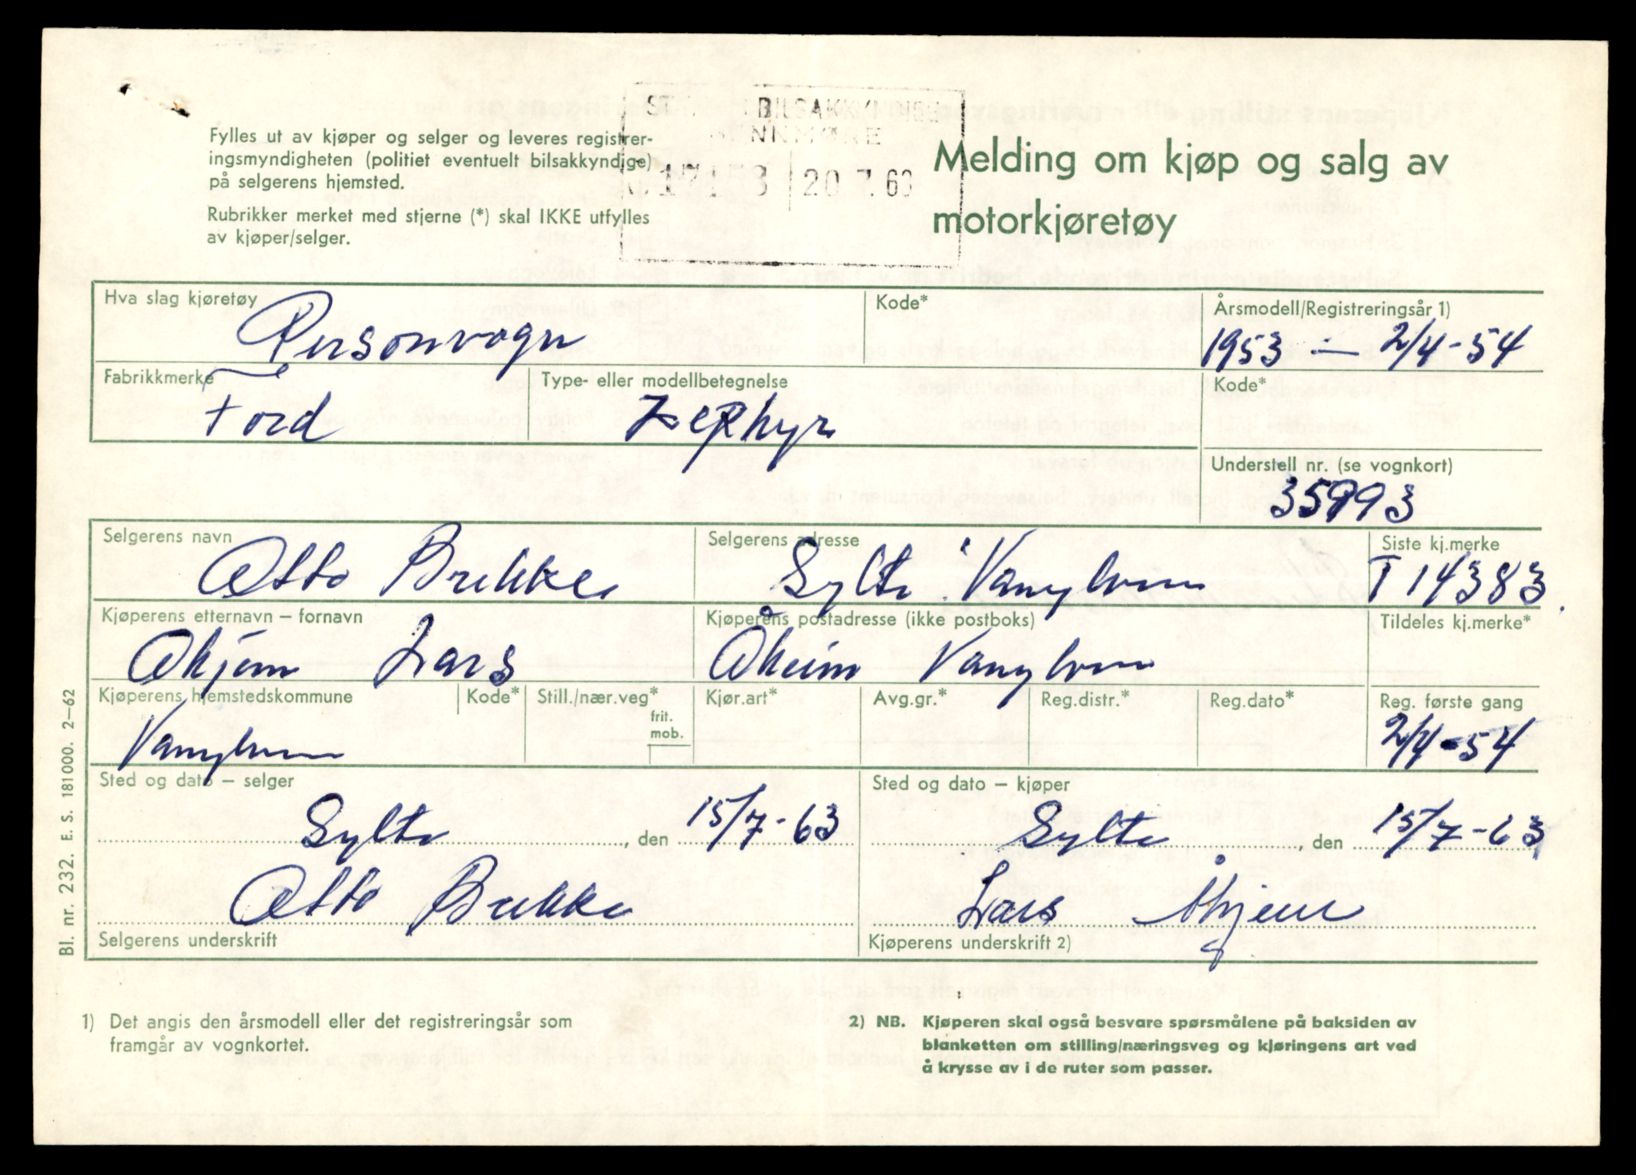 BILSAKKYNDIGE
17153 20.7.63
Fylles ut av kjøper og selger og leveres registrer-
ingsmyndigheten (politiet eventuelt bilsakkyndige)
på selgerens hjemsted.
Rubrikker merket med stjerne (*) skal IKKE utfylles
av kjøper/selger.
Melding om kjøp og salg av
motorkjøretøy
Hva slag kjøretøy
Personvogn
Kode*
Årsmodell/Registreringsår 1)
1953 — 2/4-54
Fabrikkmerke
Ford
Type- eller modellbetegnelse
Zephyr
Kode*
Understell nr. (se vognkort)
35993
Selgerens navn
Otto Brekke
Selgerens adresse
Sylte Vanylven
Siste kj.merke
T 14383.
Kjøperens etternavn – fornavn
Åhjem Lars
Kjøperens postadresse (ikke postboks)
Åheim Vanylven
Tildeles kj.merke*
Kjøperens hjemstedskommune
Vanylven
Kode*
Still./nær.veg*
frit.
mob.
Kjør.art*
Avg.gr.*
Reg.distr.*
Reg.dato*
Reg. første gang
2/4-54
Sted og dato – selger
Sylte, den 15/7-63
Sted og dato – kjøper
Sylte, den 15/7-63
Otto Brekke
Selgerens underskrift
Lars Åhjem
Kjøperens underskrift 2)
1) Det angis den årsmodell eller det registreringsår som
framgår av vognkortet.
2) NB. Kjøperen skal også besvare spørsmålene på baksiden av
blanketten om stilling/næringsveg og kjøringens art ved
å krysse av i de ruter som passer.
Bl. nr. 232. E. S. 181000. 2–62